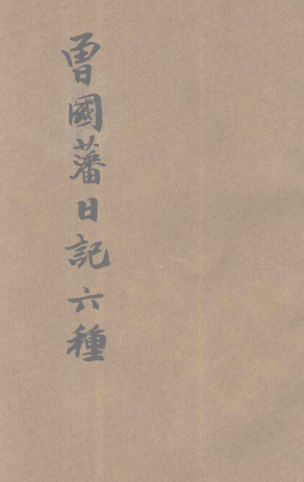 曾國藩日記六種